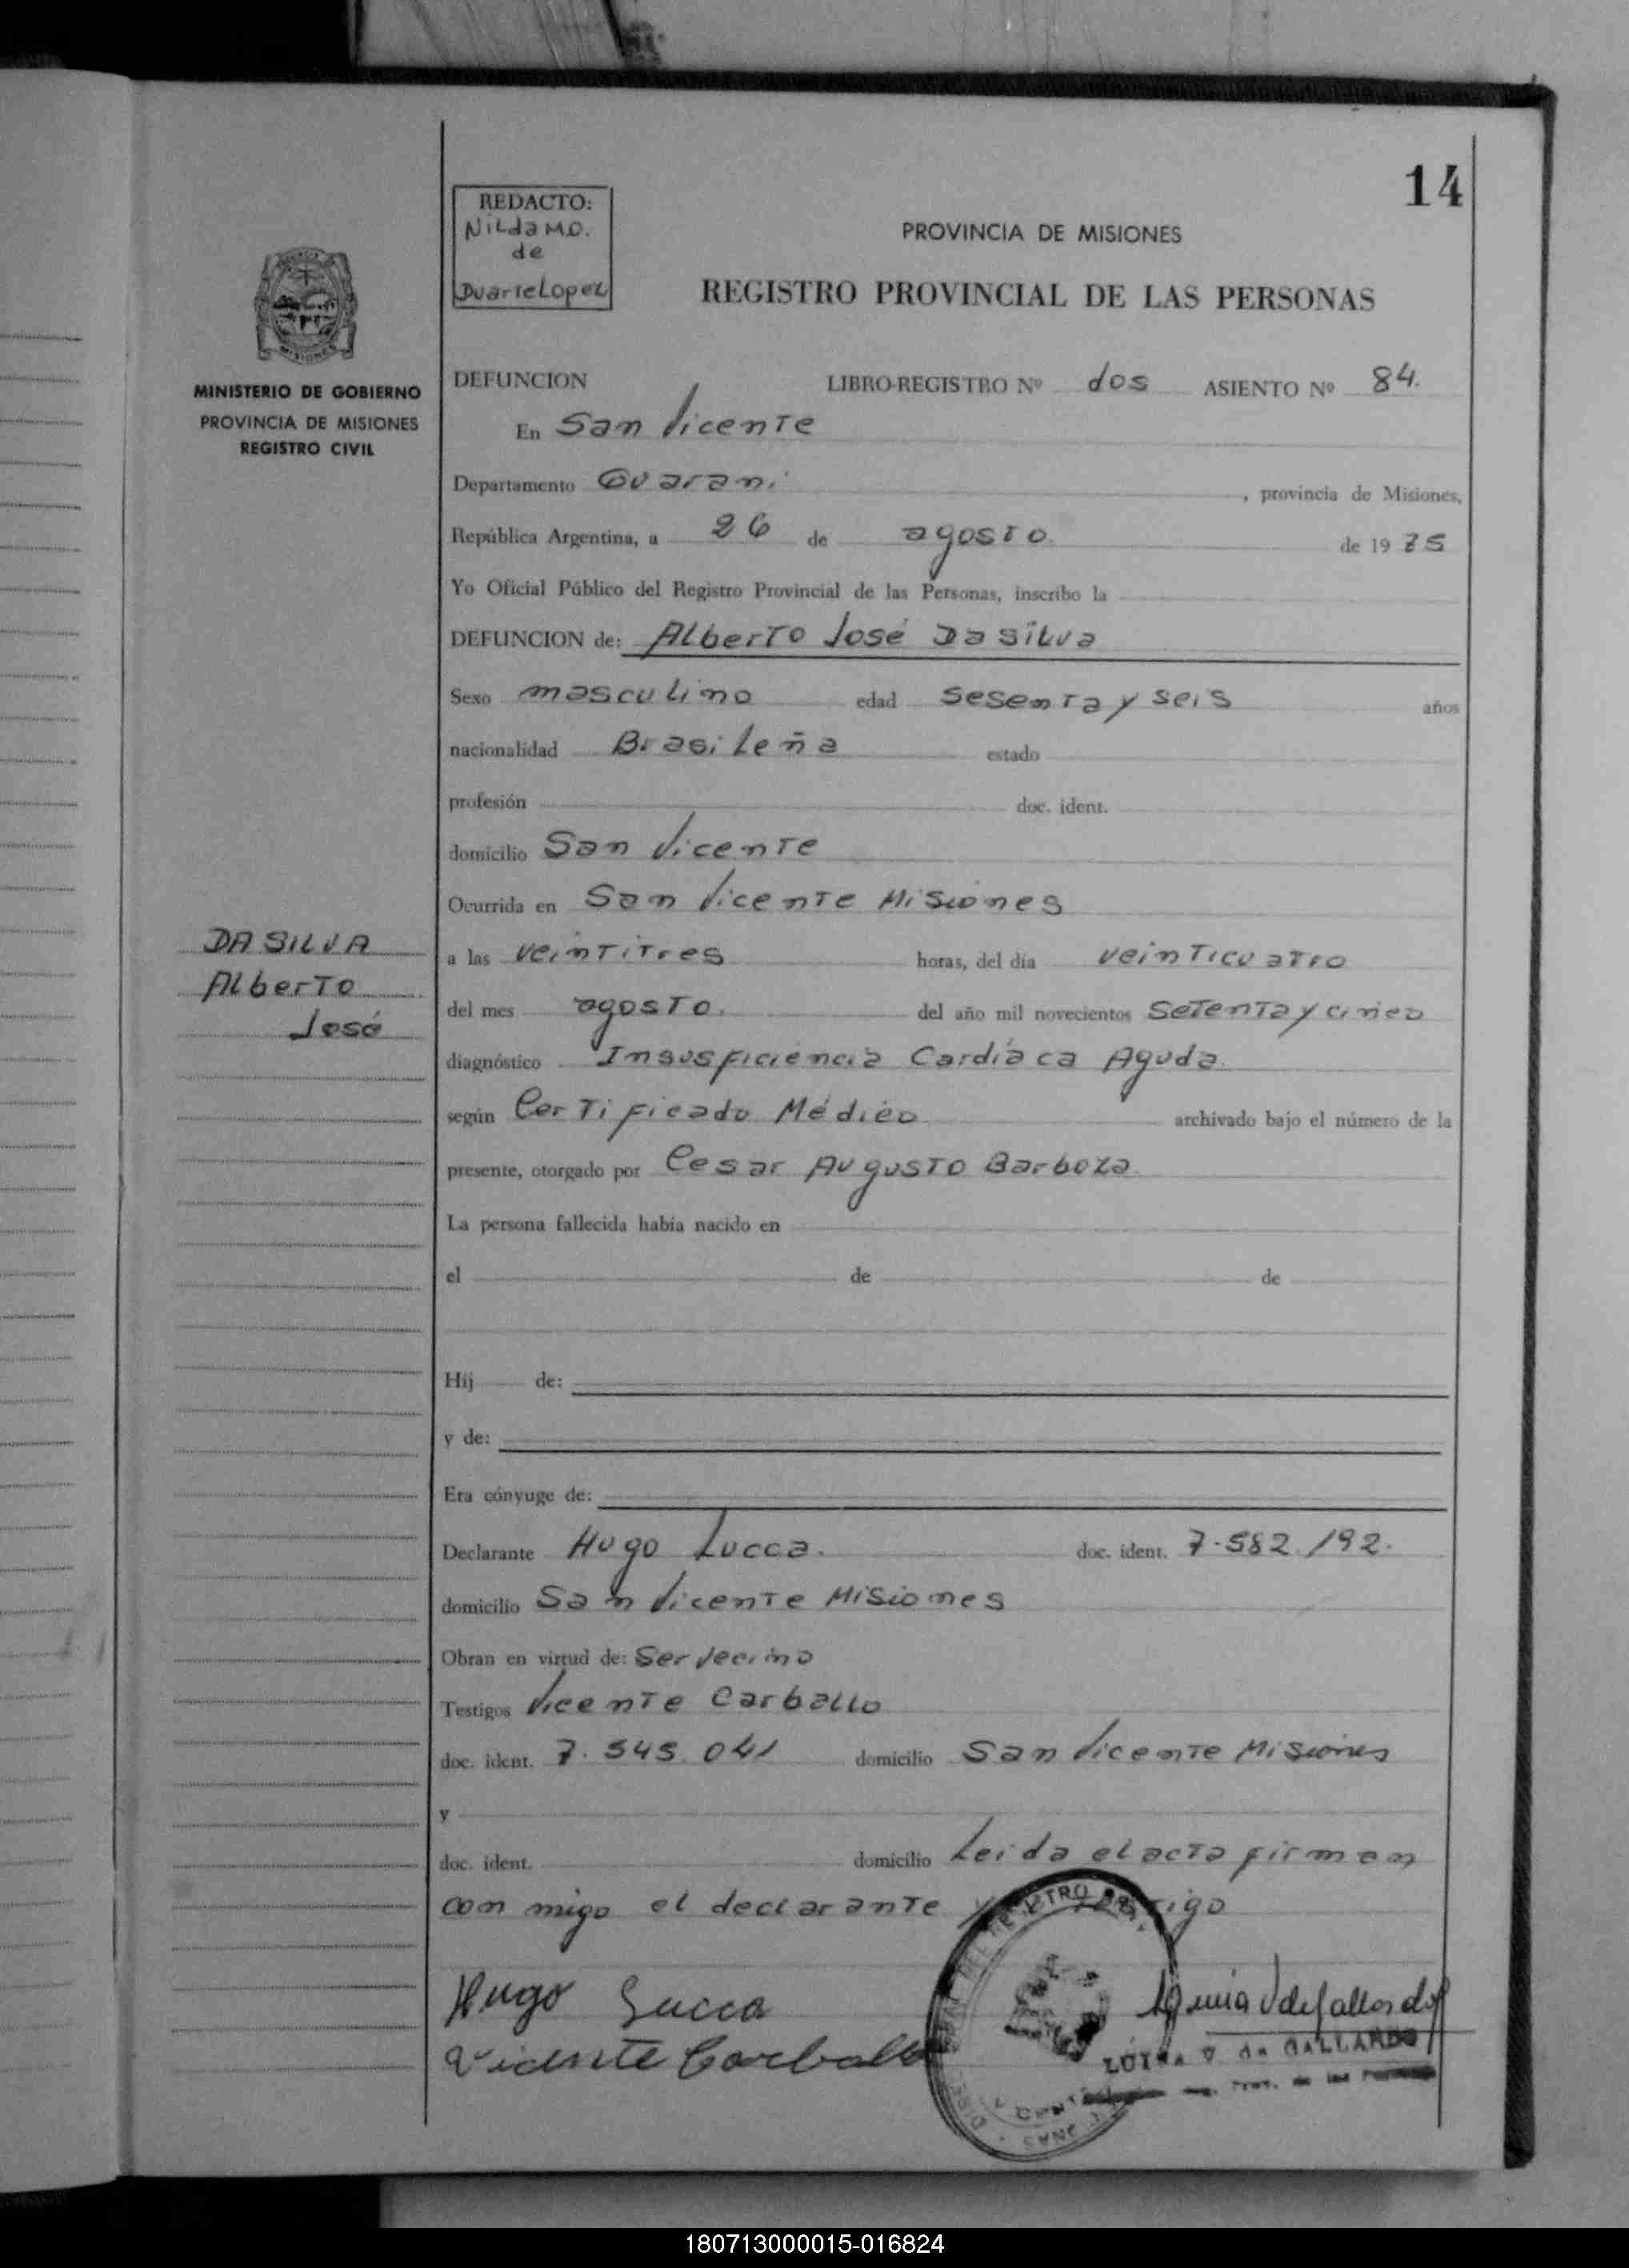 14
REDACTO:
Nilda M.D.
de
Duarte Lopez
PROVINCIA DE MISIONES
REGISTRO PROVINCIAL DE LAS PERSONAS
MISIONES
MINISTERIO DE GOBIERNO
PROVINCIA DE MISIONES
REGISTRO CIVIL
DEFUNCION LIBRO-REGISTRO Nº dos ASIENTO Nº 84.
En San Vicente
Departamento Guarani , provincia de Misiones,
República Argentina, a 26 de agosto de 1975
Yo Oficial Público del Registro Provincial de las Personas, inscribo la
DEFUNCION de: Alberto José Da Silva
Sexo masculino edad sesenta y seis años
nacionalidad Brasileña estado
profesión doc. ident.
domicilio San Vicente
Ocurrida en San Vicente Misiones
DA SILVA
Alberto
José
a las veintitres horas, del día veinticuatro
del mes agosto. del año mil novecientos setenta y cinco
diagnóstico Insusficiencia Cardíaca Aguda.
según Certificado Médico archivado bajo el número de la
presente, otorgado por Cesar Augusto Barboza.
La persona fallecida había nacido en
el de de
Hij de:
y de:
Era cónyuge de:
Declarante Hugo Lucca. doc. ident. 7.582.192.
domicilio San Vicente Misiones
Obran en virtud de: Ser Vecino
Testigos Vicente Carballo
doc. ident. 7.545.041 domicilio San Vicente Misiones
y
doc. ident. domicilio Leida el acta firman
con migo el declarante y
Hugo Lucca
Vicente Carballo
DE GALLARDO
180713000015-016824